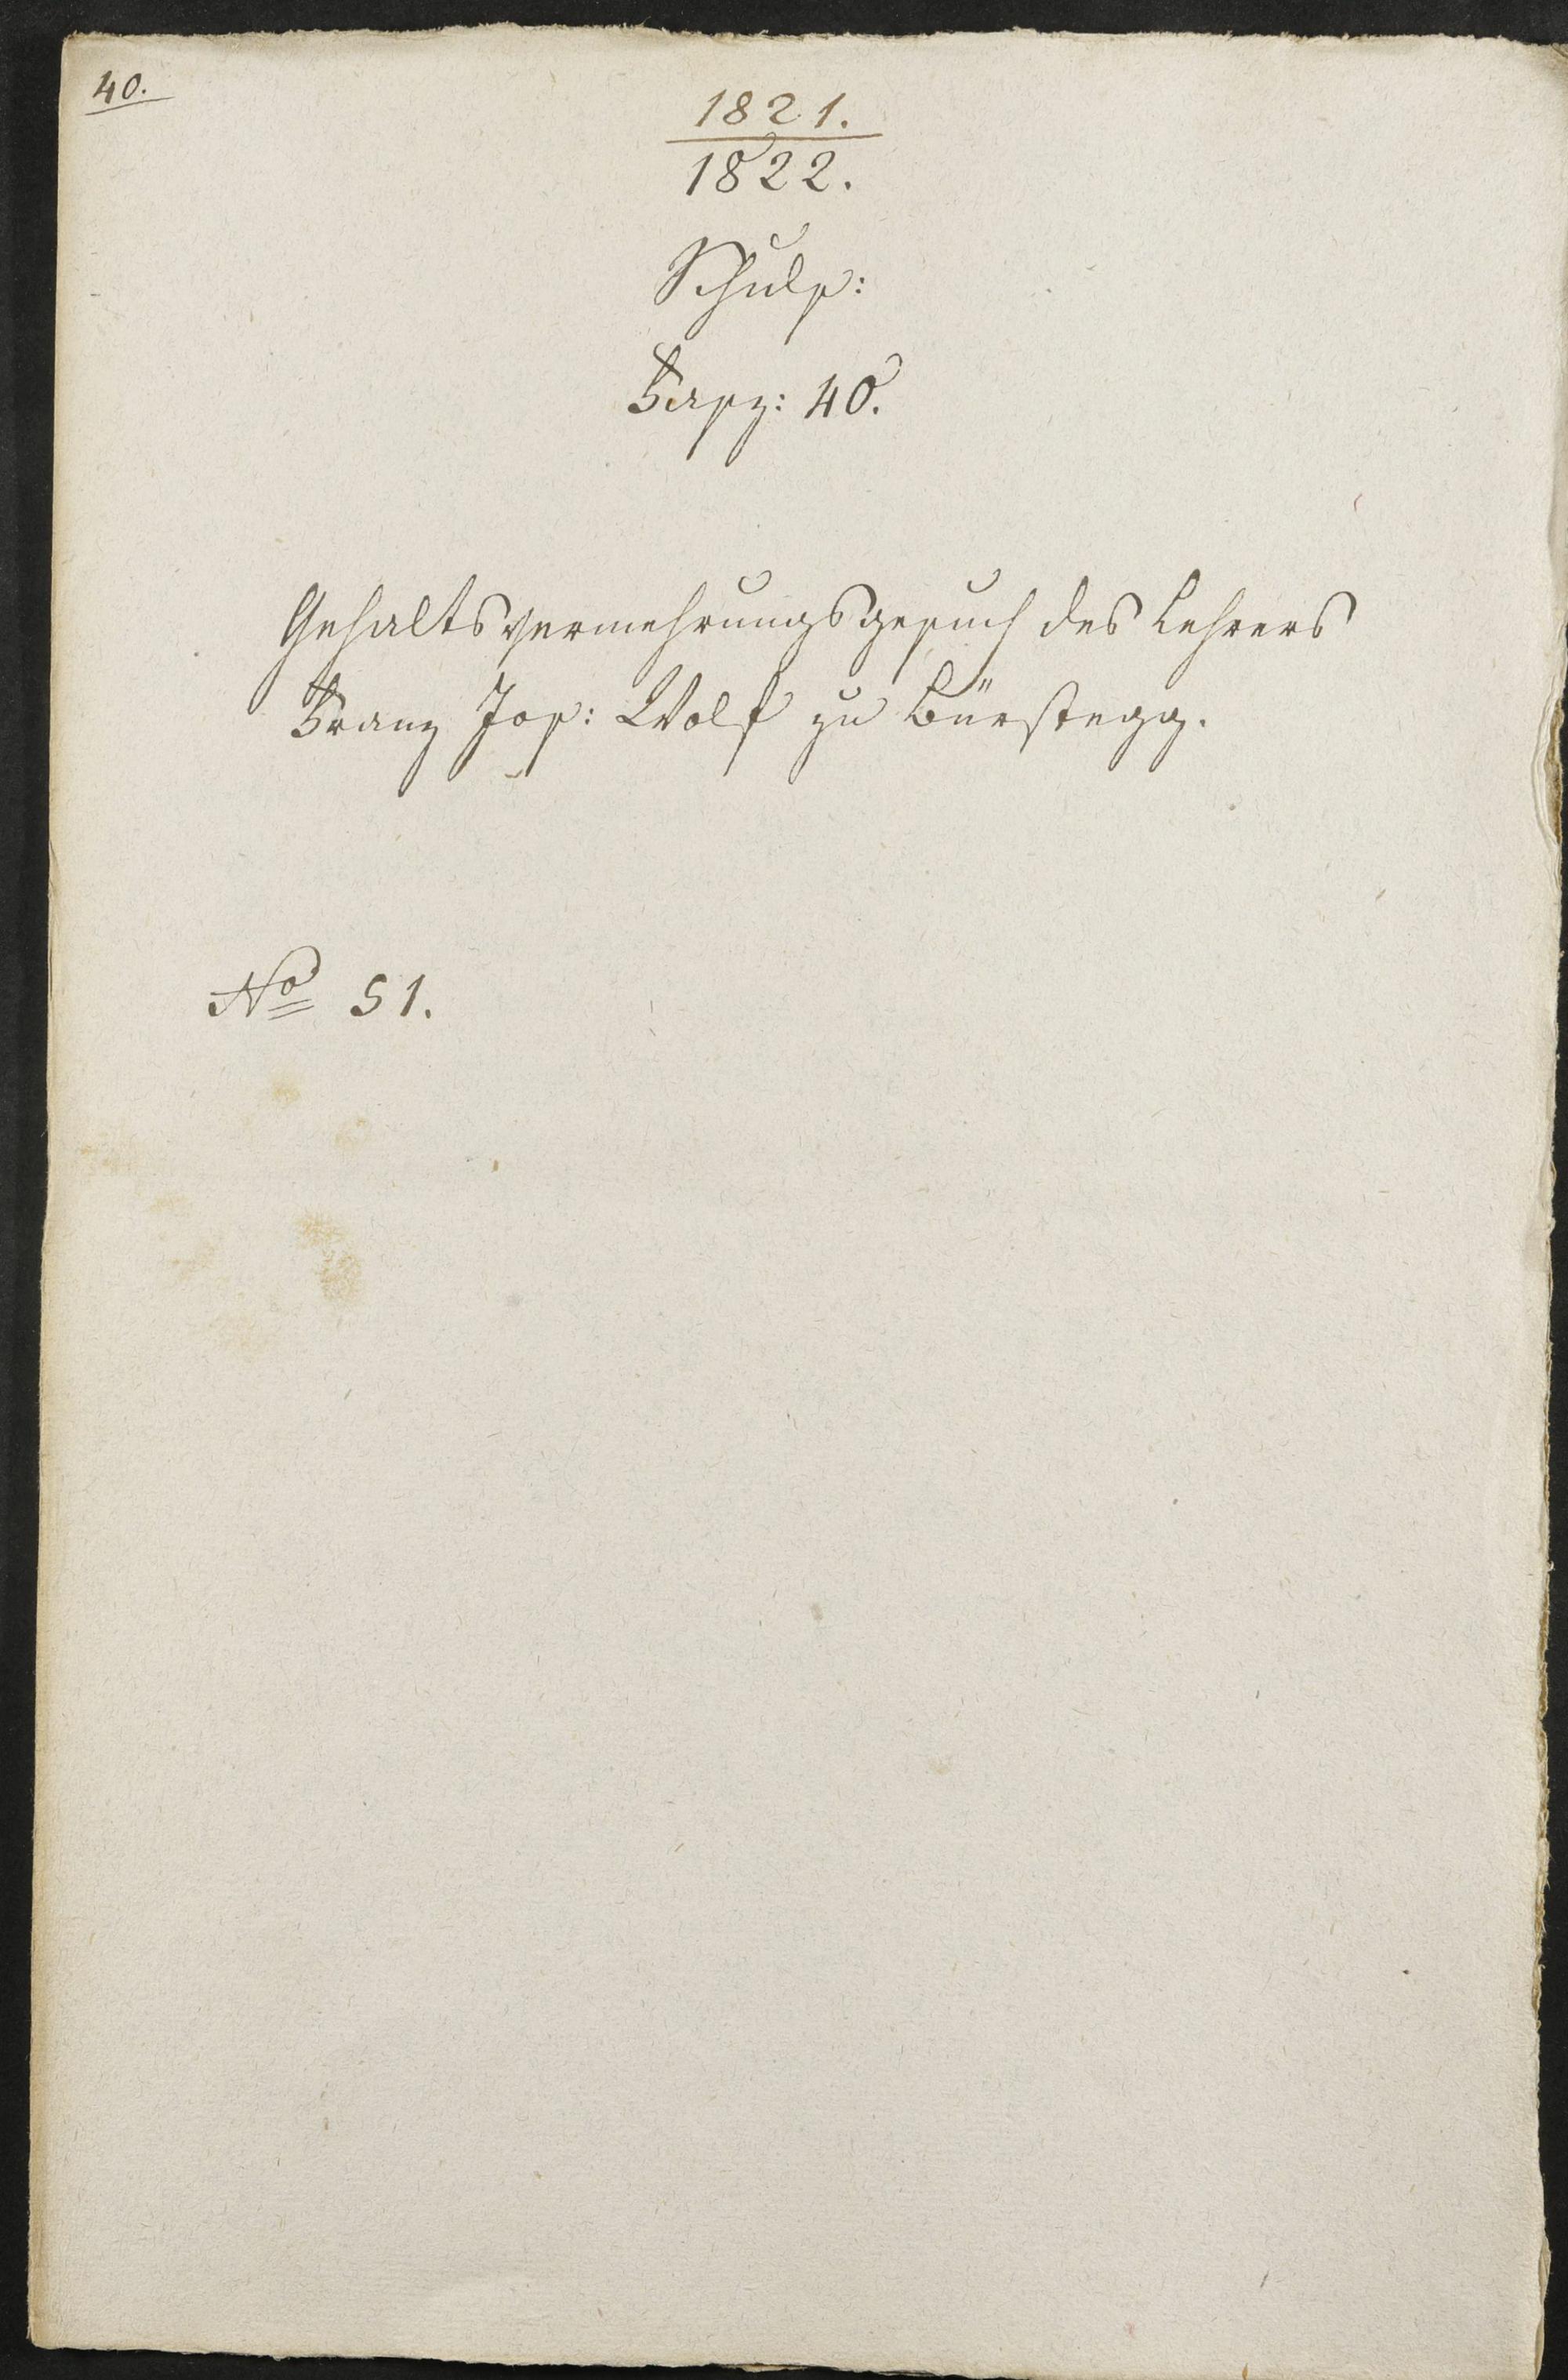 40.
1821.
1822.
Schuls:
Fasz: 40.
Gehaltsvermehrungsgesuch des Lehrers
Franz Jos: Wolf zu Bürstegg.
No 51.